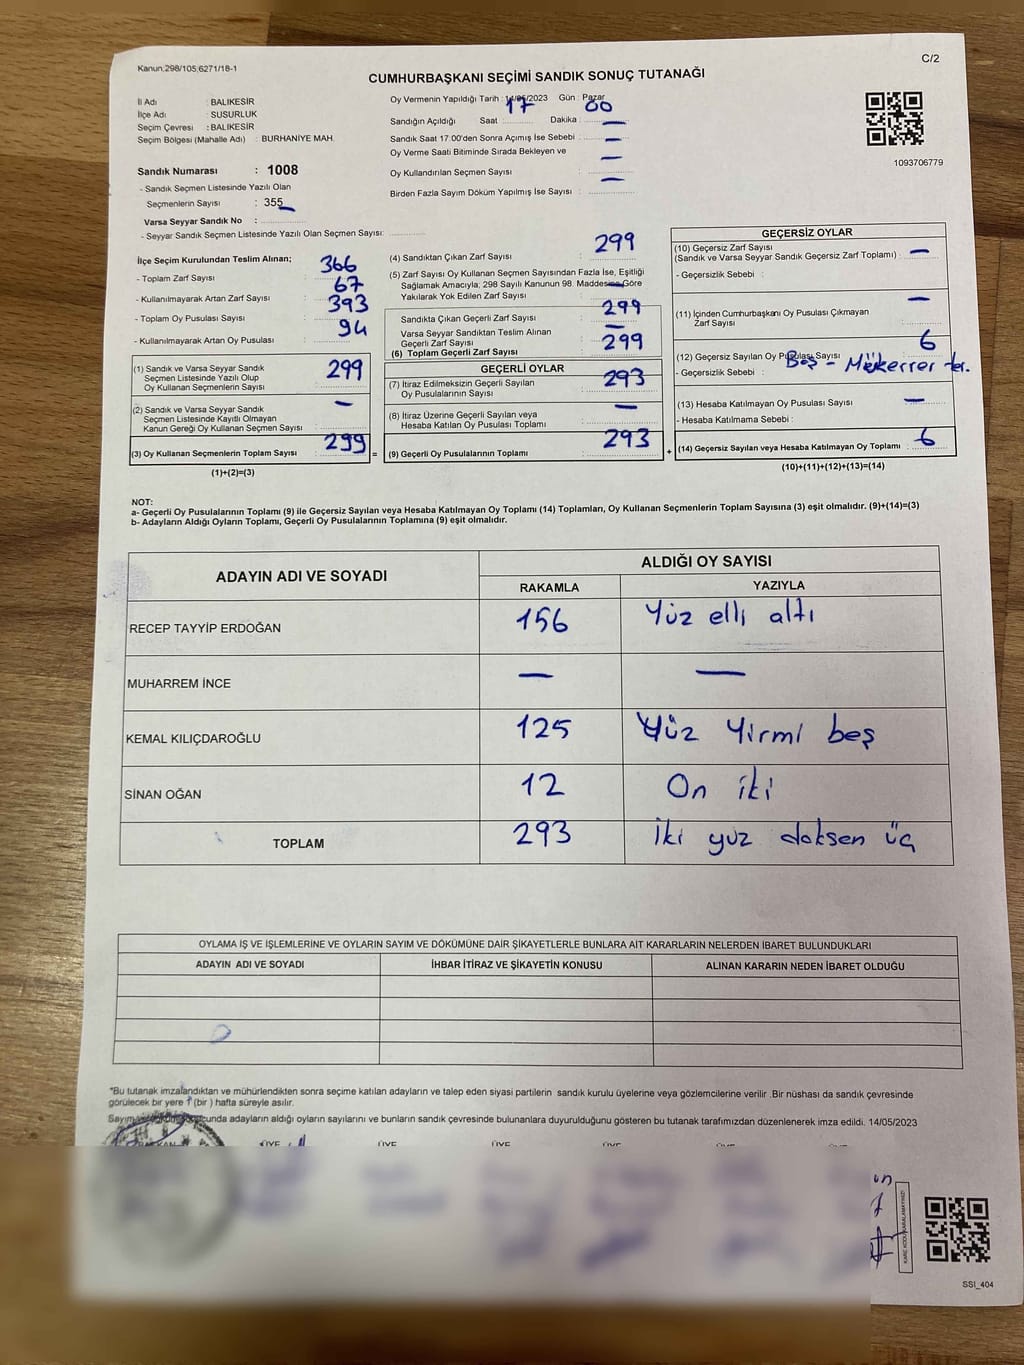 Kanun:298/105,6271/18-1
C/2
CUMHURBAŞKANI SEÇİMİ SANDIK SONUÇ TUTANAĞI
İl Adı : BALIKESİR
İlçe Adı : SUSURLUK
Seçim Çevresi : BALIKESİR
Seçim Bölgesi (Mahalle Adı) : BURHANİYE MAH.
Sandık Numarası : 1008
- Sandık Seçmen Listesinde Yazılı Olan
Seçmenlerin Sayısı : 355
Varsa Seyyar Sandık No :
- Seyyar Sandık Seçmen Listesinde Yazılı Olan Seçmen Sayısı:
Oy Vermenin Yapıldığı Tarih : 14/05/2023 Gün : Pazar
Sandığın Açıldığı Saat 17 Dakika : 00
Sandık Saat 17.00'den Sonra Açımış İse Sebebi : —
Oy Verme Saati Bitiminde Sırada Bekleyen ve
Oy Kullandırılan Seçmen Sayısı : —
Birden Fazla Sayım Döküm Yapılmış İse Sayısı : —
1093706779
İlçe Seçim Kurulundan Teslim Alınan;
- Toplam Zarf Sayısı : 366
- Kullanılmayarak Artan Zarf Sayısı : 67
- Toplam Oy Pusulası Sayısı : 393
- Kullanılmayarak Artan Oy Pusulası : 94
(1) Sandık ve Varsa Seyyar Sandık
Seçmen Listesinde Yazılı Olup
Oy Kullanan Seçmenlerin Sayısı : 299
(2) Sandık ve Varsa Seyyar Sandık
Seçmen Listesinde Kayıtlı Olmayan
Kanun Gereği Oy Kullanan Seçmen Sayısı : —
(3) Oy Kullanan Seçmenlerin Toplam Sayısı : 299 =
(1)+(2)=(3)
(4) Sandıktan Çıkan Zarf Sayısı : 299
(5) Zarf Sayısı Oy Kullanan Seçmen Sayısından Fazla İse, Eşitliği
Sağlamak Amacıyla; 298 Sayılı Kanunun 98. Maddesine Göre
Yakılarak Yok Edilen Zarf Sayısı : —
Sandıkta Çıkan Geçerli Zarf Sayısı : 299
Varsa Seyyar Sandıktan Teslim Alınan
Geçerli Zarf Sayısı : —
(6) Toplam Geçerli Zarf Sayısı : 299
GEÇERLİ OYLAR
(7) İtiraz Edilmeksizin Geçerli Sayılan
Oy Pusulalarının Sayısı : 293
(8) İtiraz Üzerine Geçerli Sayılan veya
Hesaba Katılan Oy Pusulası Toplamı : —
(9) Geçerli Oy Pusulalarının Toplamı : 293 +
GEÇERSİZ OYLAR
(10) Geçersiz Zarf Sayısı
(Sandık ve Varsa Seyyar Sandık Geçersiz Zarf Toplamı) : —
- Geçersizlik Sebebi :
(11) İçinden Cumhurbaşkanı Oy Pusulası Çıkmayan
Zarf Sayısı : —
(12) Geçersiz Sayılan Oy Pusulası Sayısı : 6
- Geçersizlik Sebebi : Boş - Mükerrer ter.
(13) Hesaba Katılmayan Oy Pusulası Sayısı : —
- Hesaba Katılmama Sebebi :
(14) Geçersiz Sayılan veya Hesaba Katılmayan Oy Toplamı : 6
(10)+(11)+(12)+(13)=(14)
NOT:
a- Geçerli Oy Pusulalarının Toplamı (9) ile Geçersiz Sayılan veya Hesaba Katılmayan Oy Toplamı (14) Toplamları, Oy Kullanan Seçmenlerin Toplam Sayısına (3) eşit olmalıdır. (9)+(14)=(3)
b- Adayların Aldığı Oyların Toplamı, Geçerli Oy Pusulalarının Toplamına (9) eşit olmalıdır.
ADAYIN ADI VE SOYADI ALDIĞI OY SAYISI
RAKAMLA YAZIYLA
RECEP TAYYİP ERDOĞAN 156 Yüz elli altı
MUHARREM İNCE — —
KEMAL KILIÇDAROĞLU 125 Yüz Yirmi beş
SİNAN OĞAN 12 On iki
TOPLAM 293 İki yüz doksen üç
OYLAMA İŞ VE İŞLEMLERİNE VE OYLARIN SAYIM VE DÖKÜMÜNE DAİR ŞİKAYETLERLE BUNLARA AİT KARARLARIN NELERDEN İBARET BULUNDUKLARI
ADAYIN ADI VE SOYADI İHBAR İTİRAZ VE ŞİKAYETİN KONUSU ALINAN KARARIN NEDEN İBARET OLDUĞU
*Bu tutanak imzalandıktan ve mühürlendikten sonra seçime katılan adayların ve talep eden siyasi partilerin sandık kurulu üyelerine veya gözlemcilerine verilir .Bir nüshası da sandık çevresinde
görülecek bir yere 1 (bir ) hafta süreyle asılır.
Sayım cunda adayların aldığı oyların sayılarını ve bunların sandık çevresinde bulunanlara duyurulduğunu gösteren bu tutanak tarafımızdan düzenlenerek imza edildi. 14/05/2023
BAŞKAN ÜYE ÜYE ÜYE ÜYE
KARE KODU KARALAMAYINIZ!
SSI_404